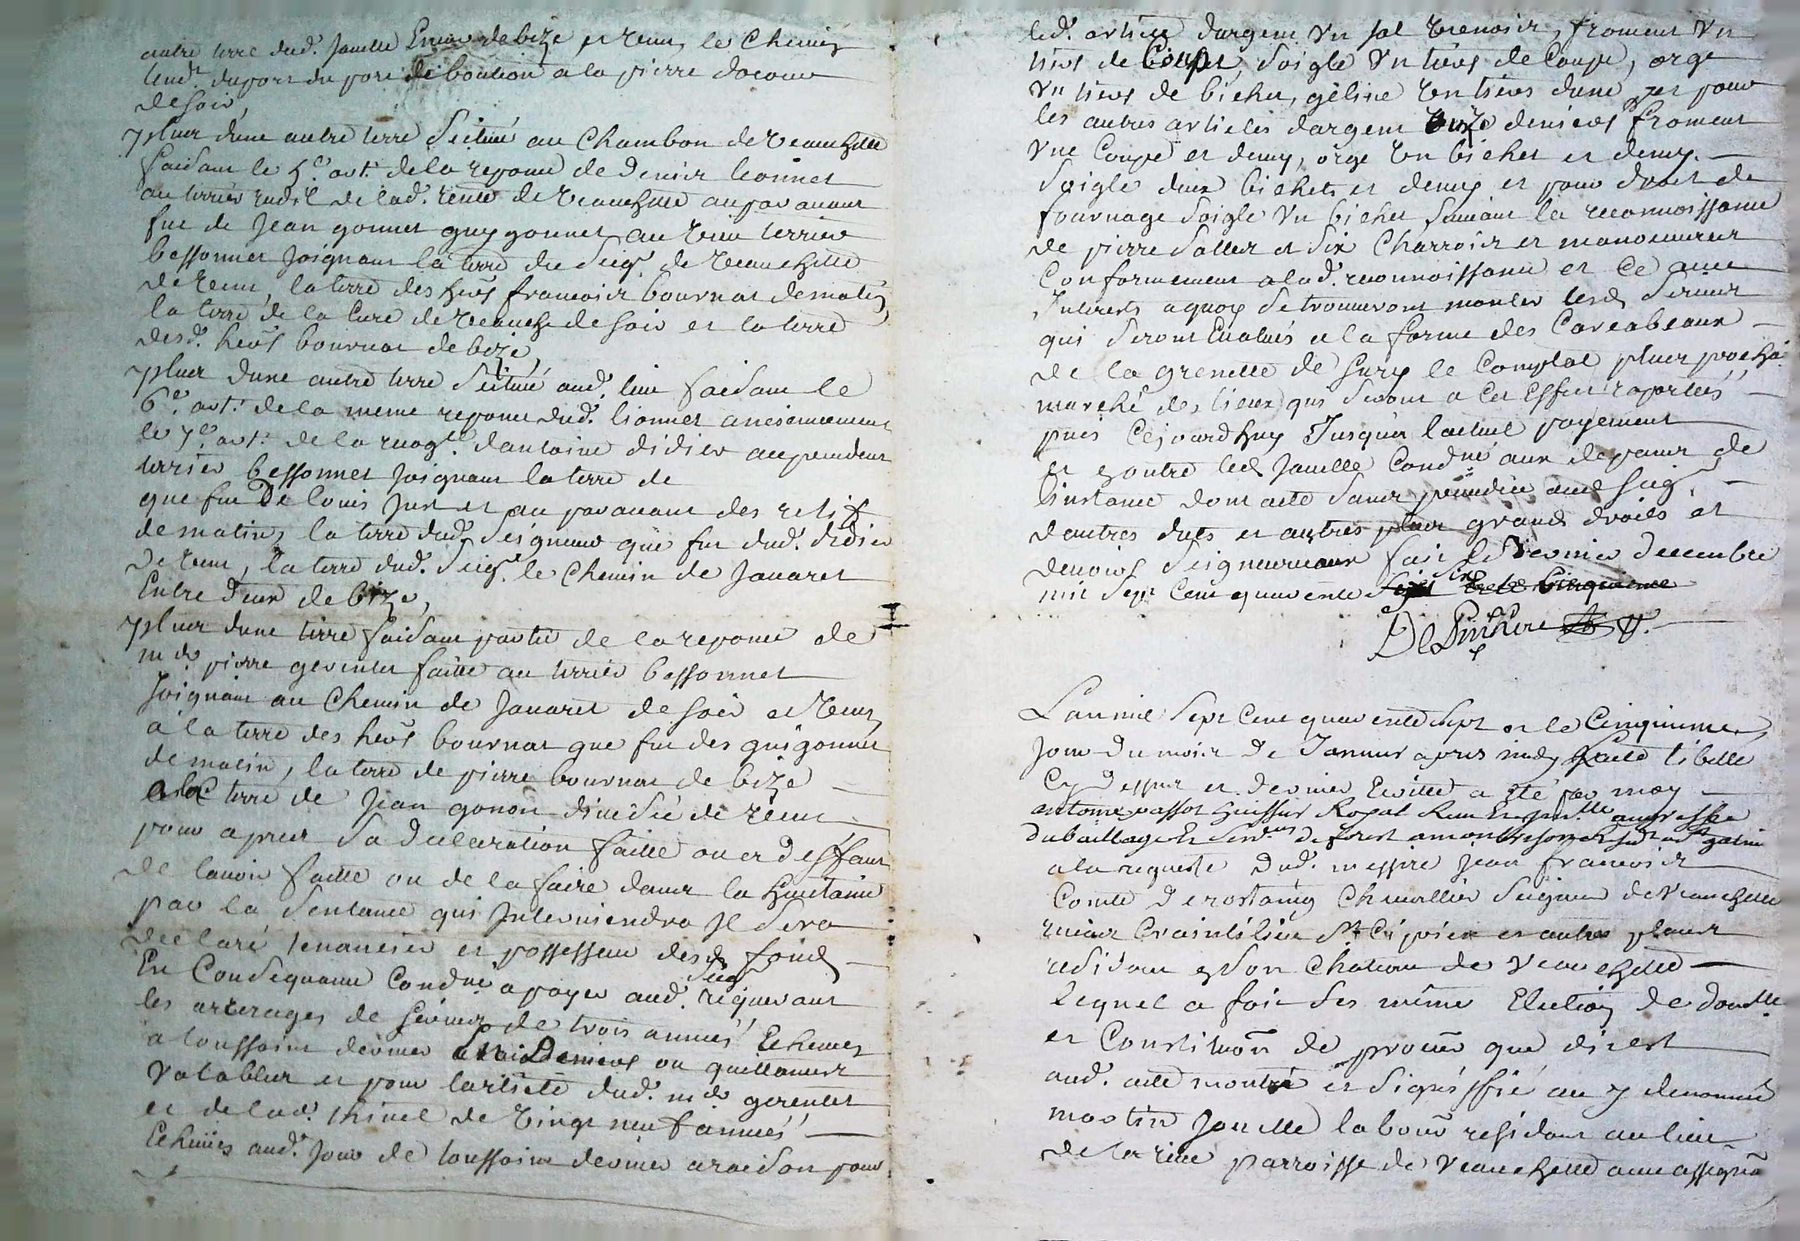 autre terre dud. Janelle Encor de bize et vent, le Chemin
tend.t du port du pare de boution a la pierre
de soir,
plus d'une autre terre scitué au Chambon de Veauchette
faisant le 5.e art. de la reponce de Denis lionnet
au terrier de lad. rente de Veauchette auparavant
fut de Jean gonnet guy gonnet au terrier
bessonnet Joignant la terre du Seig.r de Veauchette
de vent, la terre des heirs francois bournat de matin,
la terre de la Cure de Veauche de soir et la terre
desd. heirs bournat de bize,
plus d'une autre terre scitué aud. lieu faisant le
6.e art. de la meme reponce dud. lionnet anciennement
le 7.e art. de la d'antoine didier au
terrier bessonnet Joignant la terre de
que fut De louis Just et au paravant des
de matin, la terre dud. Seigneur que fut dud. didier
de vent, la terre dud. Seig.r le Chemin de Janaret
Entre deux de bize,
plus d'une terre faisant partie de la reponce de
pierre gerentet faitte au terrier bessonnet
Joignant au Chemin de Janaret de soir et vent,
a la terre des heirs bournat que fut des guigonnet
de matin, la terre de pierre bournat de bize
a la terre de Jean gonon de vent
pour apres Sa declaration faitte ou a deffaut
de l'avoir faitte ou de la faire dans la huictaine
par la Sentance qui Interviendra Il Sera
declaré tenancier et possesseur desd. fonds
En Consequance Condné a payer aud. Seig.r requerant
les arerages de Servis de trois années Echeues
a toussaint dernier en Deniers ou quittances
Valables et pour l'article dud. gerentet
et de lad. thivel de vingt neuf années
Echeues aud. Jour de toussaint dernier a raison pour
led. article d'argent un sol viennois, froment un
tiers de Coupe Soigle un tiers de Coupe, orge
un tiers de bichet, geline un tiers d'une, et pour
les autres articles d'argent onze deniers froment
une Coupe et demy, orge un bichet et demy.
Soigle deux bichets et demy et pour droit de
fournage Soigle un bichet suivant la reconnoissance
de pierre Sallet et Six Charrois et manoeuvres
Conformement a lad. reconnoissance et Ce avec
Interests a quoy Se trouveront monter lesd. Servis
qui Seront Evalués a la forme des Carcabeaux
de la grenette de Sury le Comptal plus prochain
marché des lieux qui Seront a Cet Effet raportés
puis Cejourdhuy Jusqu'a l'actuel payement
et contre led. Janelle Condné aux depens de
l'instance dont acte Sans prejudice aud. Seig.r
d'autres duts et autres plus grands droits et
devoirs Seigneuriaux fait le dernier decembre
mil Sept Cent quarente Six
DePinhere
L'an mil Sept Cent quarente Sept et le Cinquieme
Jour du mois de Janvier apres midy l'acte libellé
Cy dessus et dernier Ecritte a été par moy
antoine passot huissier Royal
du baillage Et de forest a montbrison
a la requeste dud. messire Jean francois
Comte de rostaing Chevallier Seigneur de Veauchette
rivas Craintilieu St Ciprien et autres places
residant en Son Chateau de Veauchette
Lequel a fait Ses même Election de dom.lle
et Constituon de procur que dit est
aud. acte montré et Signiffié au y denommé
martin Janelle labour residant au lieu
de la rive parroisse de Veauchette avec assignaon